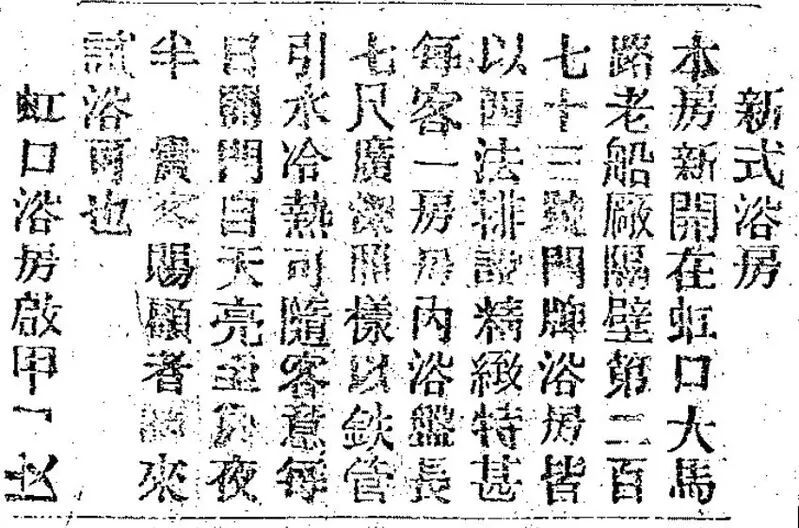 新式浴房
本房新開在虹口大馬
路老船廠隔壁第二百
七十三號門牌浴房皆
以西法排設精緻特甚
每客一房房內浴盤長
七尺廣深照樣以鉄管
引水冷熱可隨客意每
日開門自天亮至夜
半　貴客賜顧者請來
試浴可也
虹口浴房啟甲一